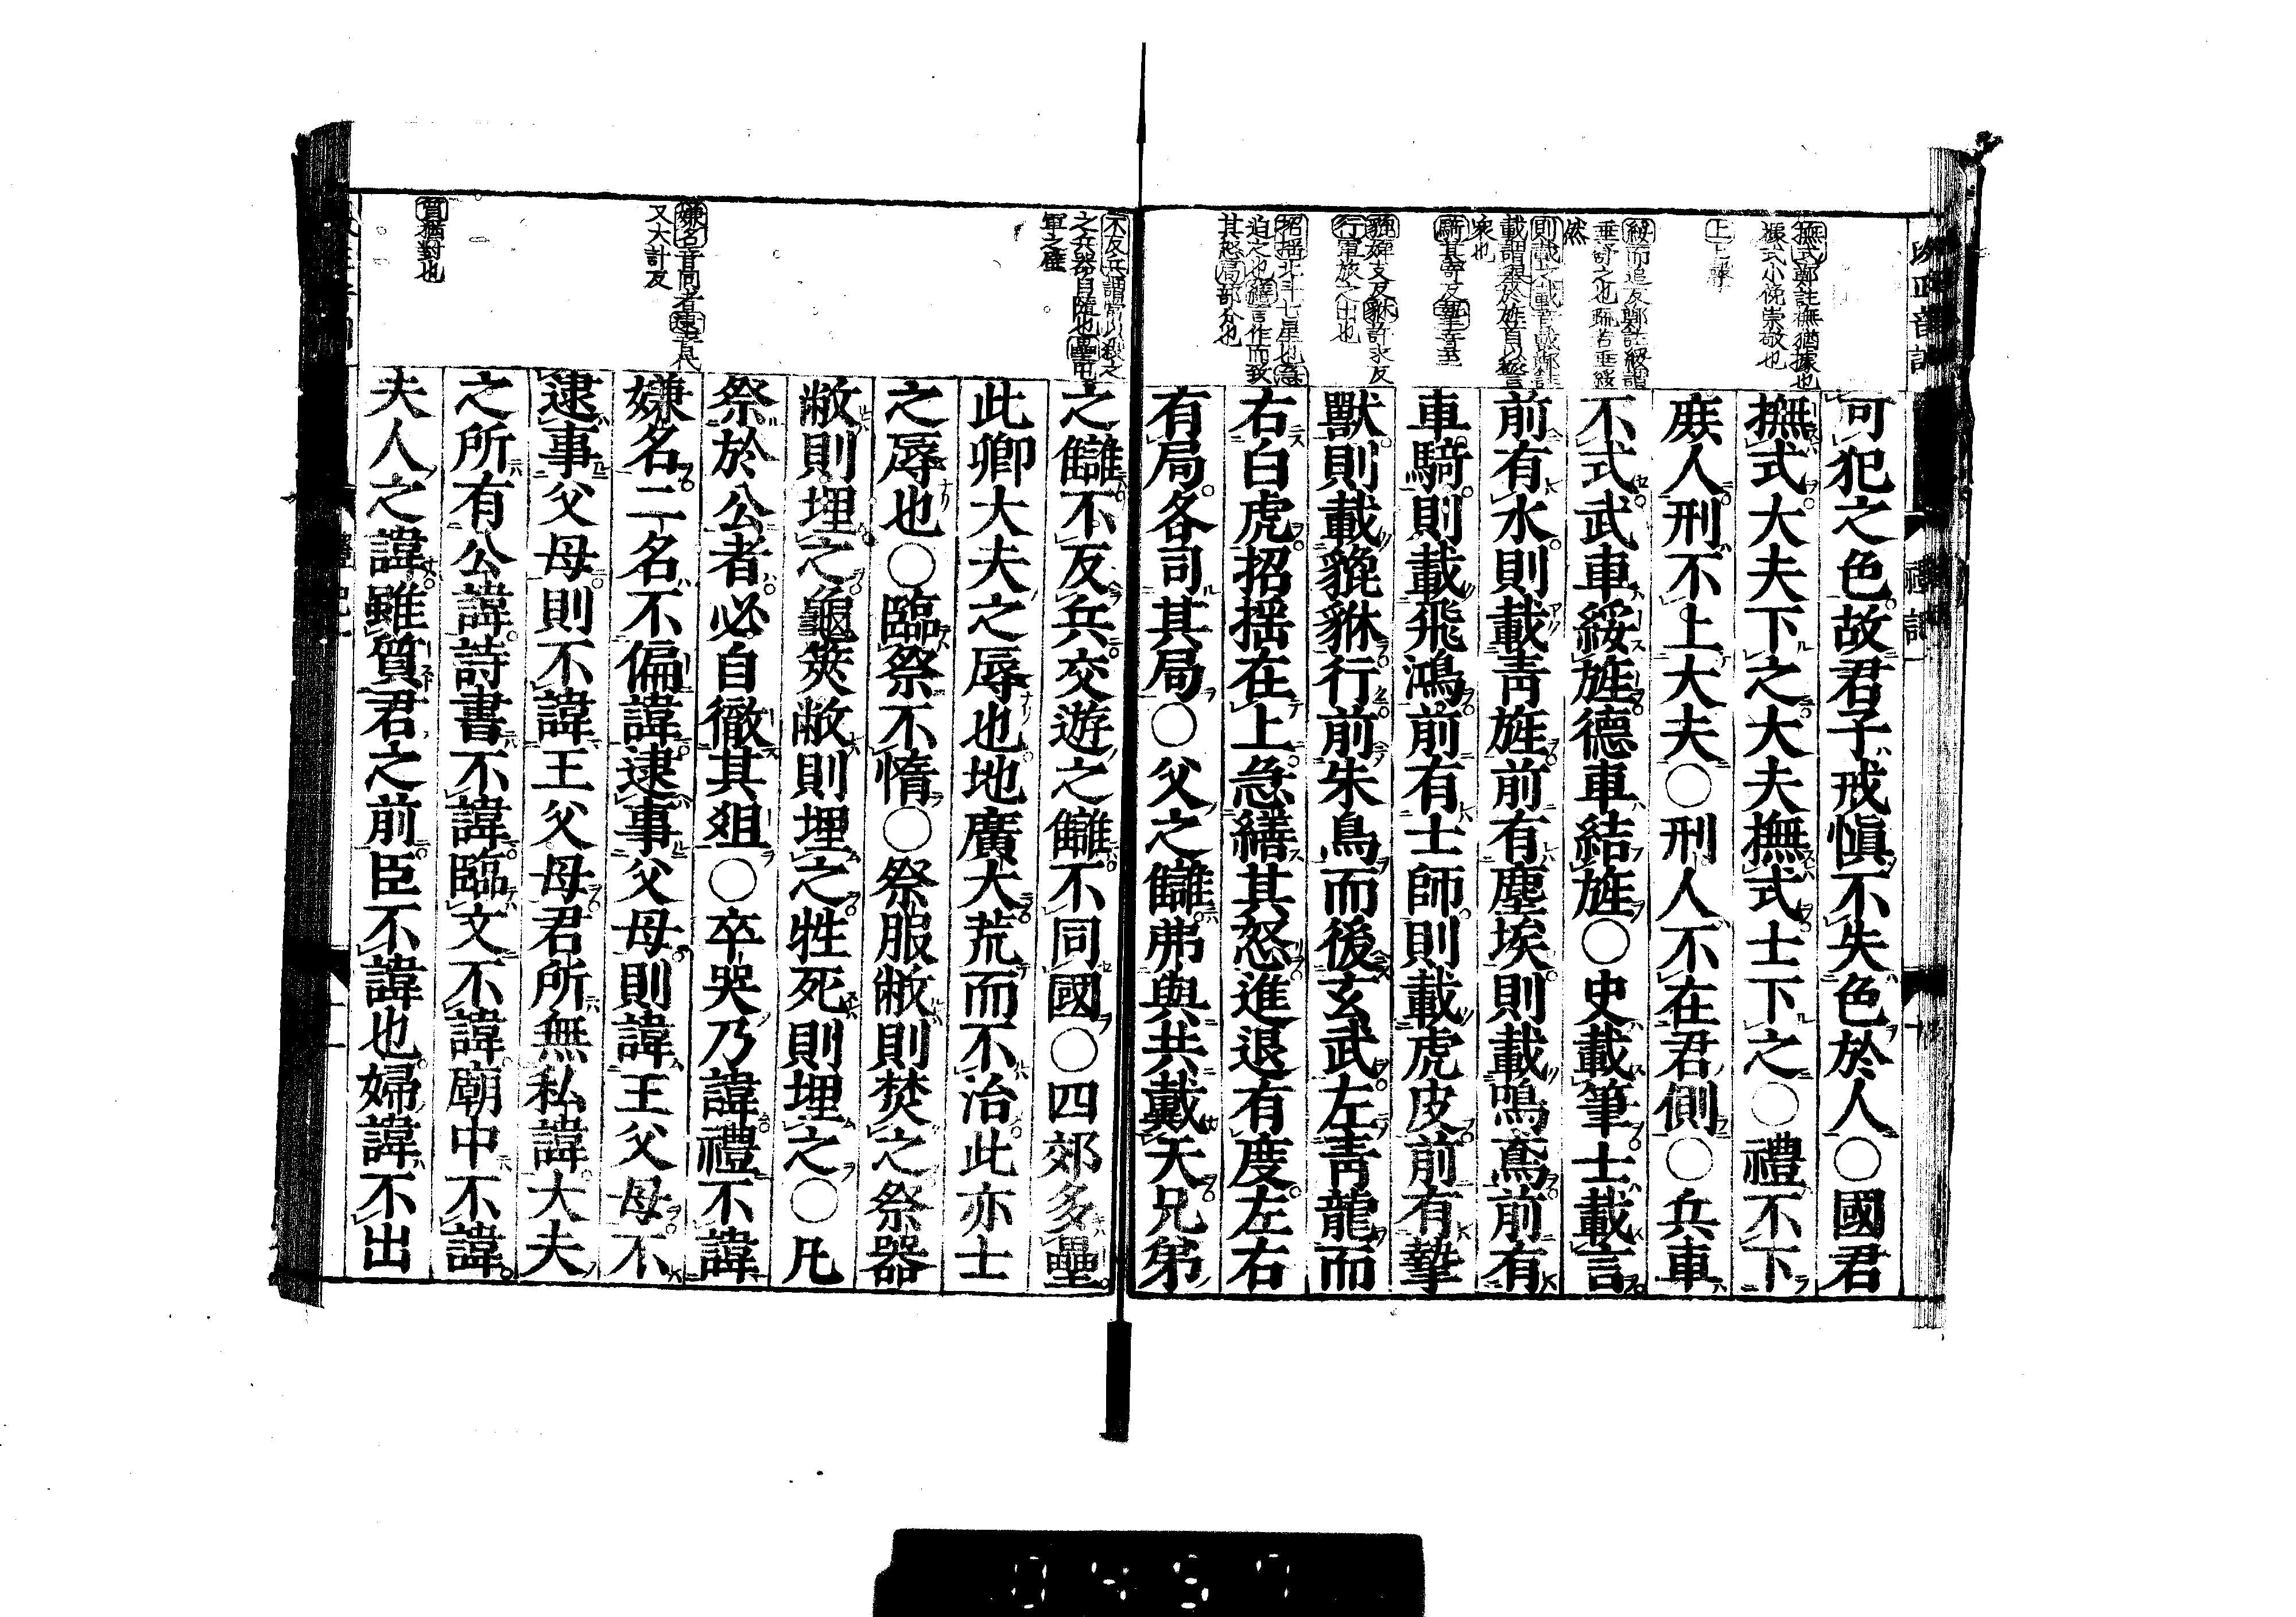 撫式鄭註撫猶據也
據式小俛崇敬也
上上聲
綏而追反鄭註綏謂
垂舒之也疏若垂綏
然
則載之載音戴鄭註
載謂擧於旌首以警
衆也
騎其寄反摯音至
貔婢支反貅許求反
行軍旅之出也
招搖北斗七星也急
迫之也繕言作而致
其怒局部分也
可犯之色故君子戒愼不失色於人○國君
撫式大夫下之大夫撫式士下之○禮不下
庶人刑不上大夫○刑人不在君側○兵車
不式武車綏旌德車結旌○史載筆士載言
前有水則載靑旌前有塵埃則載鳴鳶前有
車騎則載飛鴻前有士師則載虎皮前有摯
獸則載貔貅行前朱鳥而後玄武左靑龍而
右白虎招搖在上急繕其怒進退有度左右
有局各司其局○父之讎弗與共戴天兄弟
不反兵謂常以殺之
之兵器自隨也壘
軍之壁
嫌名音同者逮音代
又大計反
質猶對也
之讎不反兵交遊之讎不同國○四郊多壘
此卿大夫之辱也地廣大荒而不治此亦士
之辱也○臨祭不惰○祭服敝則焚之祭器
敝則埋之龜筴敝則埋之牲死則埋之○凡
祭於公者必自徹其俎○卒哭乃諱禮不諱
嫌名二名不偏諱逮事父母則諱王父母不
逮事父母則不諱王父母君所無私諱大夫
之所有公諱詩書不諱臨文不諱廟中不諱
夫人之諱雖質君之前臣不諱也婦諱不出